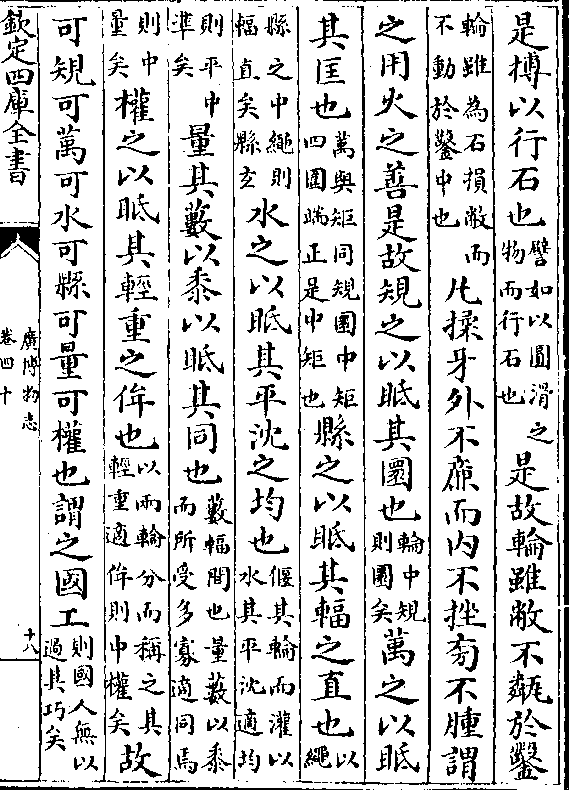 是摶以行石也譬如以圓滑之物而行石也是故輪雖敝不甐於鑿
輪雖為石損敝而不動於鑿中也凡揉牙外不㢘而内不挫旁不腫謂
之用火之善是故規之以眡其圜也輪中規則圜矣萬之以眡
其匡也萬與矩同規圜中矩四圍端正是中矩也縣之以眡其輻之直也以繩
縣之中繩則輻直矣縣玄水之以眡其平沈之均也偃其輪而灌以水其平沈適均
則平中準矣量其藪以黍以眡其同也藪輻間也量藪以黍而所受多寡適同焉
則中量矣權之以眡其輕重之侔也以兩輪分而稱之其輕重適侔則中權矣故
可規可萬可水可縣可量可權也謂之國工則國人無以過其巧矣
欽定四庫全書
廣博物志
卷四十
十八